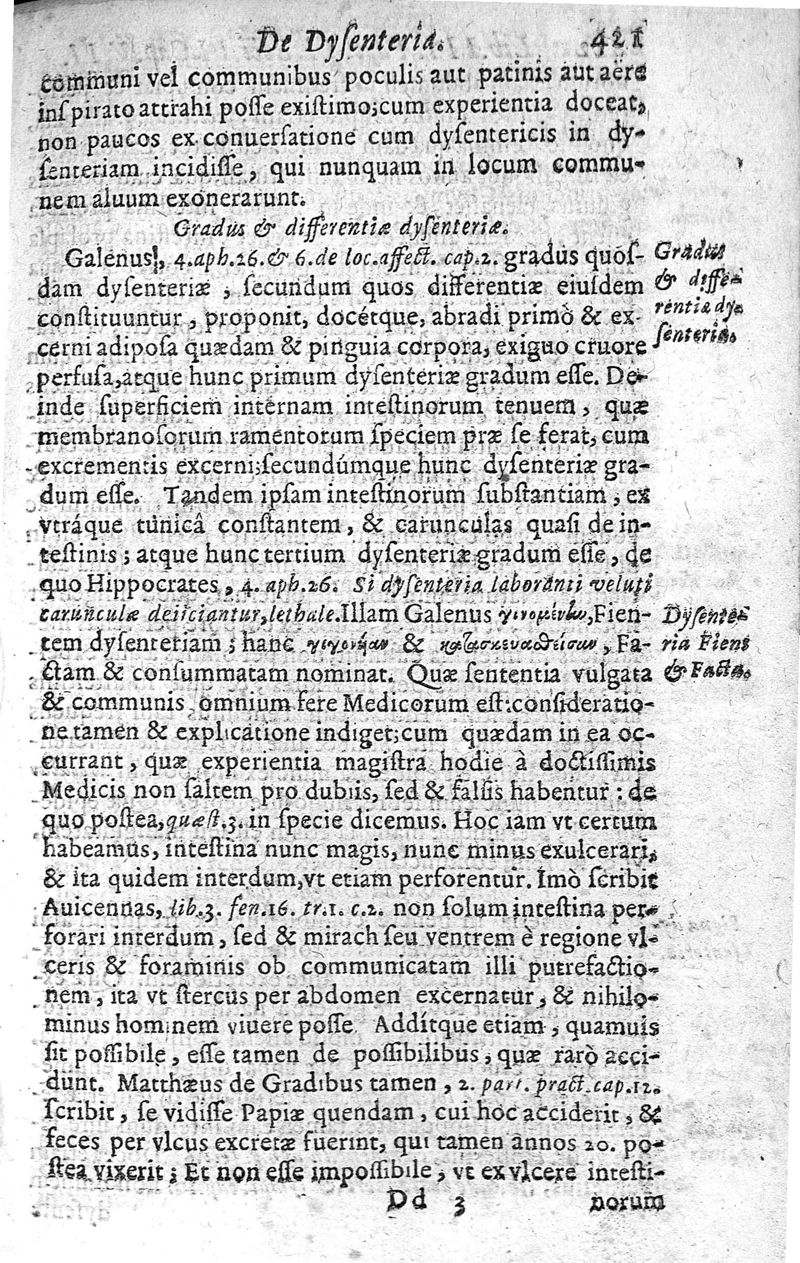 De Dyſenteria. 421
communi vel communibus poculis aut patinis aut aëre
inſpirato attrahi poſſe exiſtimo; cum experientia doceat,
non paucos ex conuerſatione cum dyſentericis in dy-
ſenteriam incidiſſe, qui nunquam in locum commu-
nem aluum exonerarunt.
Gradus & differentiæ dyſenteriæ.
Galenus, 4. aph. 26. & 6. de loc. affect. cap. 2. gradus quoſ-
dam dyſenteriæ, ſecundum quos differentiæ eiuſdem
conſtituuntur, proponit, docétque, abradi primò & ex-
cerni adipoſa quædam & pinguia corpora, exiguo cruore
perfuſa, atque hunc primum dyſenteriæ gradum eſſe. De-
inde ſuperficiem internam inteſtinorum tenuem, quæ
membranoſorum ramentorum ſpeciem præ ſe ferat, cum
excrementis excerni; ſecundúmque hunc dyſenteriæ gra-
dum eſſe. Tandem ipſam inteſtinorum ſubſtantiam, ex
vtráque tunicâ conſtantem, & carunculas quaſi de in-
teſtinis; atque hunc tertium dyſenteriæ gradum eſſe, de
quo Hippocrates, 4. aph. 26. Si dyſenteria laboranti veluti
carunculæ deijciantur, lethale. Illam Galenus γινομένην, Fien-
tem dyſenteriam; hanc γεγονῆαν & κατασκευασθεῖσαν, Fa-
ctam & conſummatam nominat. Quæ ſententia vulgata
& communis omnium fere Medicorum eſt: conſideratio-
ne tamen & explicatione indiget; cum quædam in ea oc-
currant, quæ experientia magiſtra hodie à doctiſſimis
Medicis non ſaltem pro dubiis, ſed & falſis habentur: de
quo poſtea, quæſt. 3. in ſpecie dicemus. Hoc iam vt certum
habeamus, inteſtina nunc magis, nunc minus exulcerari,
& ita quidem interdum, vt etiam perforentur. Imò ſcribit
Auicennas, lib. 3. fen. 16. tr. 1. c. 2. non ſolum inteſtina per-
forari interdum, ſed & mirach ſeu ventrem è regione vl-
ceris & foraminis ob communicatam illi putrefactio-
nem, ita vt ſtercus per abdomen excernatur, & nihilo-
minus hominem viuere poſſe. Addítque etiam, quamuis
ſit poſſibile, eſſe tamen de poſſibilibus, quæ rarò acci-
dunt. Matthæus de Gradibus tamen, 2. part. pract. cap. 12.
ſcribit, ſe vidiſſe Papiæ quendam, cui hoc acciderit, &
feces per vlcus excretæ fuerint, qui tamen annos 20. po-
ſtea vixerit; Et non eſſe impoſſibile, vt ex vlcere inteſti-
Dd 3 norum
Gradus
& diffe-
rentiæ dy-
ſenteriæ.
Dyſente-
ria Fiens
& Facta.